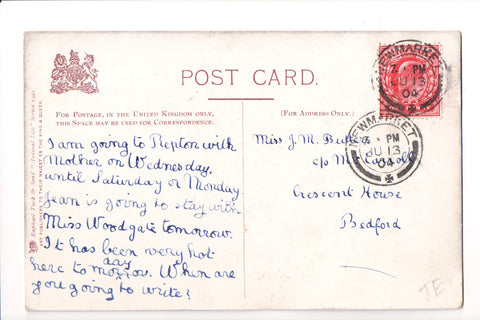 POST CARD.
FOR POSTAGE, IN THE UNITED KINGDOM ONLY,
THIS SPACE MAY BE USED FOR CORRESPONDENCE.
(FOR ADDRESS ONLY.)
I am going to Repton with
Mother on Wednesday,
until Saturday or Monday
Jean is going to stay with
Miss Woodgate tomorrow.
It has been very hot
here to day morrow. When are
you going to write?
Miss J.M.
c/o
Crescent House
Bedford
NEWMARKET
2 - PM
JU 13
04
NEWMARKET
PM
JU 13
04
Raphael Tuck & Sons'
ART PUBLISHERS TO THEIR MAJESTIES THE KING & QUEEN.
JE